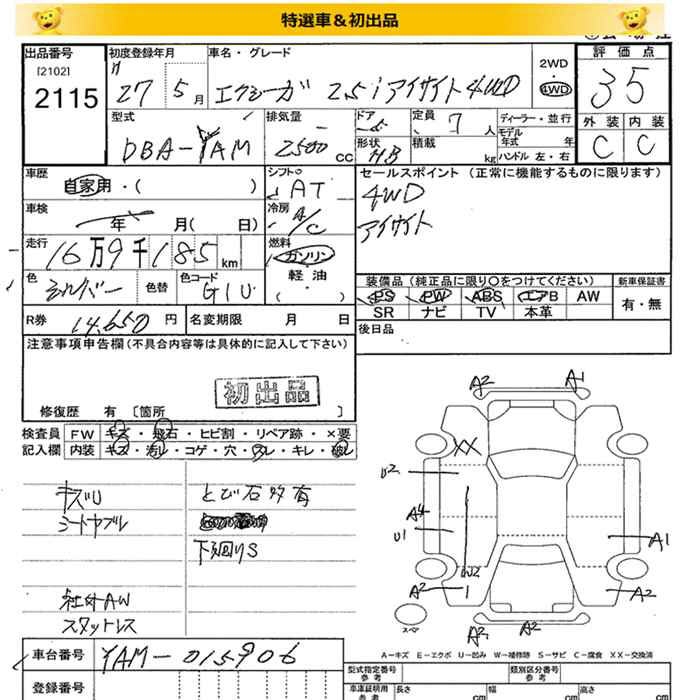 特選車&初出品
出品番号
[2102]
2115
初度登録年月
27 5 月
車名・グレード
エクシーガ 2.5iアイサイト4WD
2WD
・
4WD
評価点
35
外装 内装
C C
型式
DBA-YAM
排気量
2500 cc
ドア
5
形状
H.B
定員
7 人
積載
kg
ディーラー・並行
モデル年式 年
ハンドル 左・右
車歴
自家用・( )
シフト
AT
セールスポイント (正常に機能するものに限ります)
4WD
アイサイト
車検
年 月( 日)
冷房
A/C
走行
16万9千185 km
燃料
ガソリン
・
軽油
・
( )
色
シルバー
色替
色コード
G1U
装備品(純正品に限り○をつけてください)
新車保証書
PS PW ABS エアB AW
有・無
SR ナビ TV 本革
R券
14,650 円
名変期限 月 日
後日品
注意事項申告欄(不具合内容等は具体的に記入して下さい)
初出品
修復歴 有 〔箇所 〕
検査員
記入欄
FW キズ・飛石・ヒビ割・リペア跡・×要
内装 キズ・汚レ・コゲ・穴・スレ・キレ・破レ
キズU
シートヤブレ
社外AW
スタットレス
とび石多有
下廻りS
A2 A1
XX
U2
A4
U1
W2
A1
A2 1
A2
スペア
A2 A2
A-キズ E-エクボ U-凹み W-補修跡 S-サビ C-腐食 XX-交換済
車台番号
YAM-015906
登録番号
型式指定番号
類別区分番号
車庫証明用参考
長さ cm
幅 cm
高さ cm